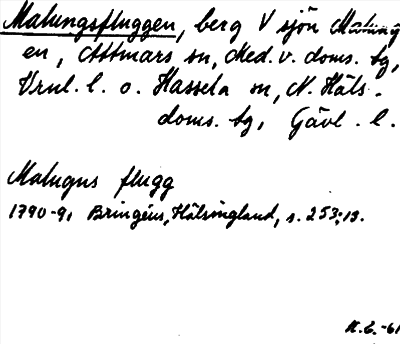 Malungsfluggen, berg V sjön Malung
en, Attmars sn, Med. v. doms. sg,
Vrnl. l. o. Hassela sn, N. Häls.
doms. sg, Gävl. l.
Malugns flugg
1790-91 Bringéus, Hälsingland, s. 253:13.
K.E.-61